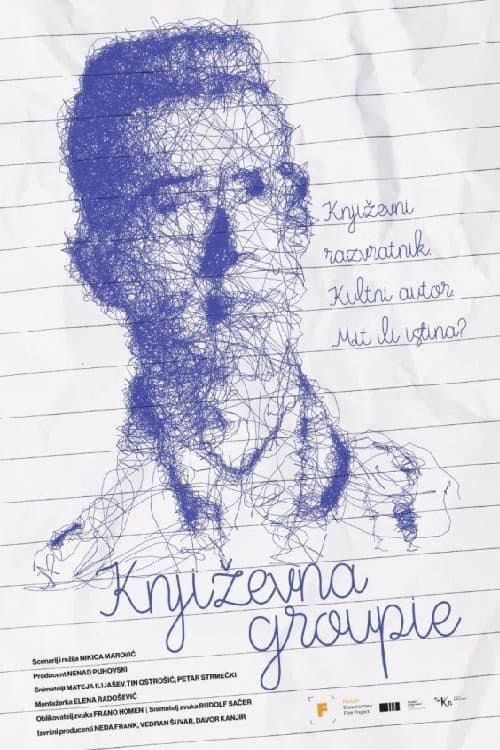 Književni
razvratnik.
Kultni autor.
Mit ili istina?
Književna
groupie
Scenarij i režija NIKICA MAROVIĆ
Producent NENAD PUHOVSKI
Snimatelji MATEJA ILIJAŠEV, TIN OSTROŠIĆ, PETAR STRMEČKI
Montažerka ELENA RADOŠEVIĆ
Oblikovatelj zvuka FRANO HOMEN | Snimatelj zvuka RUDOLF SAČER
Izvršni producenti NEDA FRANK, VEDRAN ŠUVAR, DAVOR KANJIR
F
Film Project